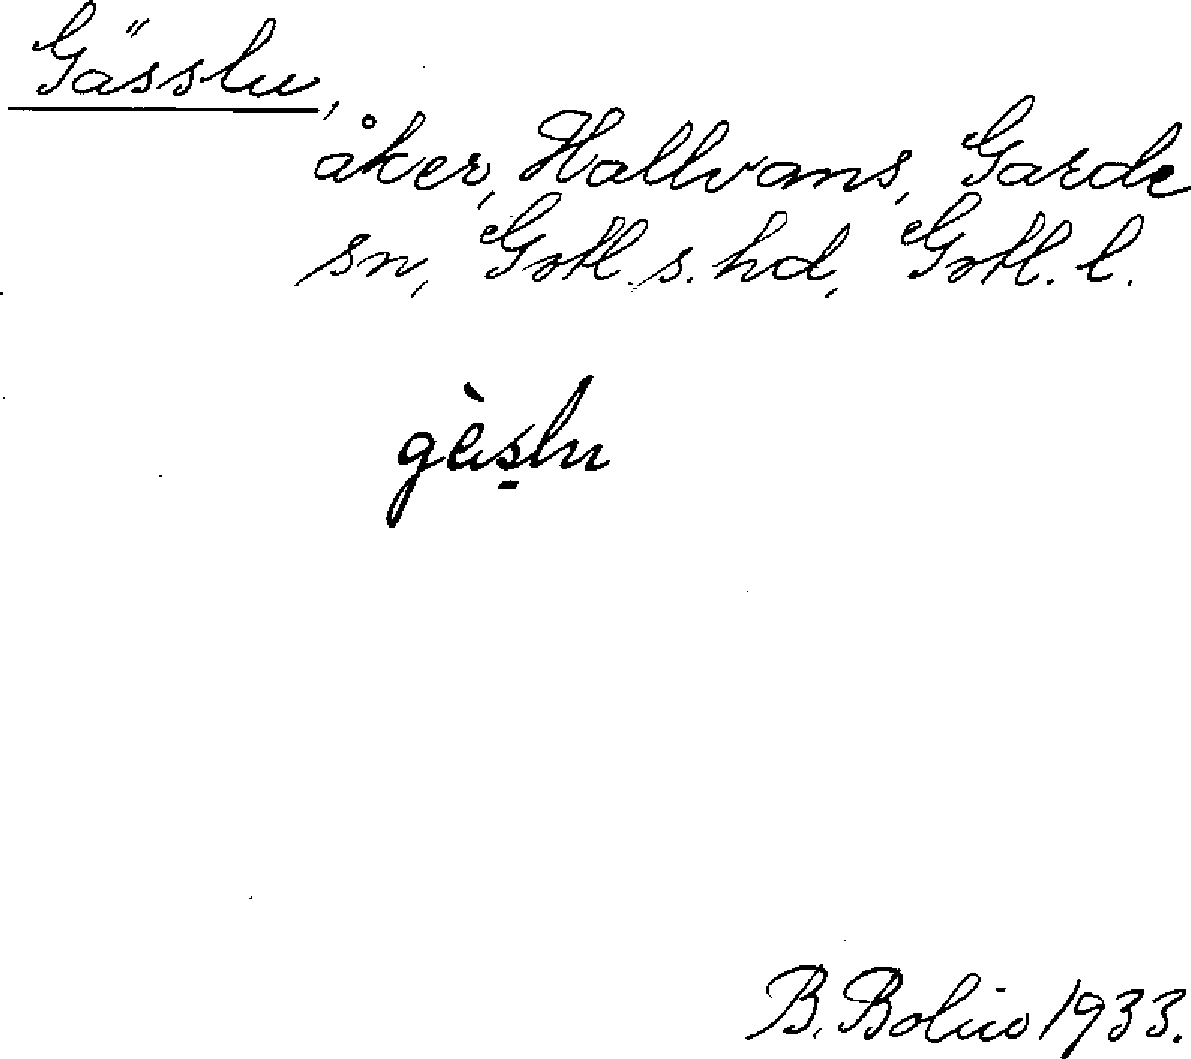 Gässlu,
åker, Hallvans, Garde
sn, Gotl. s. hd, Gotl. l.
gèslu
B. Bolin 1933.